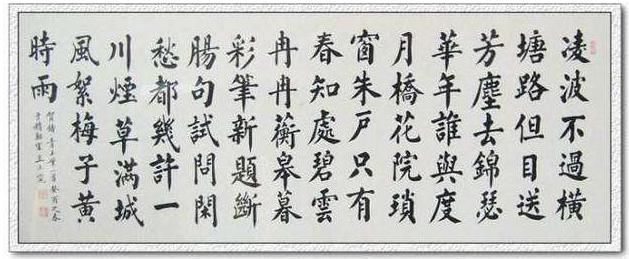 凌波不過橫
塘路但目送
芳塵去錦瑟
華年誰與度
月橋花院瑣
窗朱戶只有
春知處碧雲
冉冉蘅皋暮
彩筆新題斷
腸句試問閑
愁都幾許一
川煙草滿城
風絮梅子黃
時雨
賀鑄青玉案一首癸酉之春